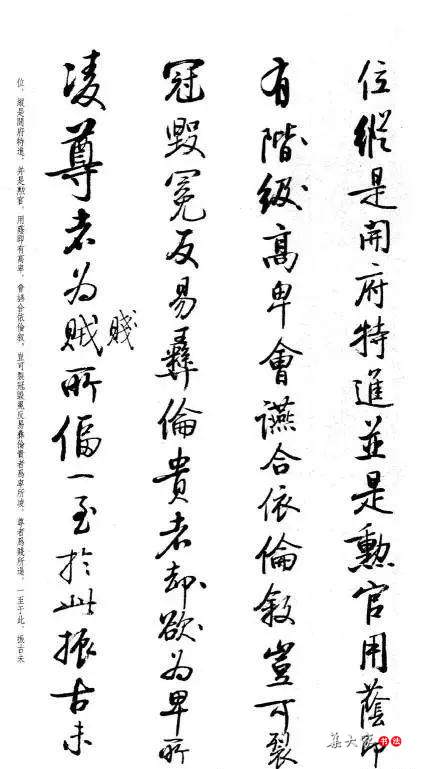 位縱是開府特進並是勲官用蔭即
有階級高卑會讌合依倫敘豈可裂
冠毀冕反易彝倫貴者却欲為卑所
凌尊者為賊所偪一至於此振古未
賤
位，縱是開府特進，并是勲官，用蔭即有高卑，會讌合依倫敘，豈可裂冠毀冕反易彝倫貴者為卑所凌，尊者為賤所逼，一至于此，振古未
書法